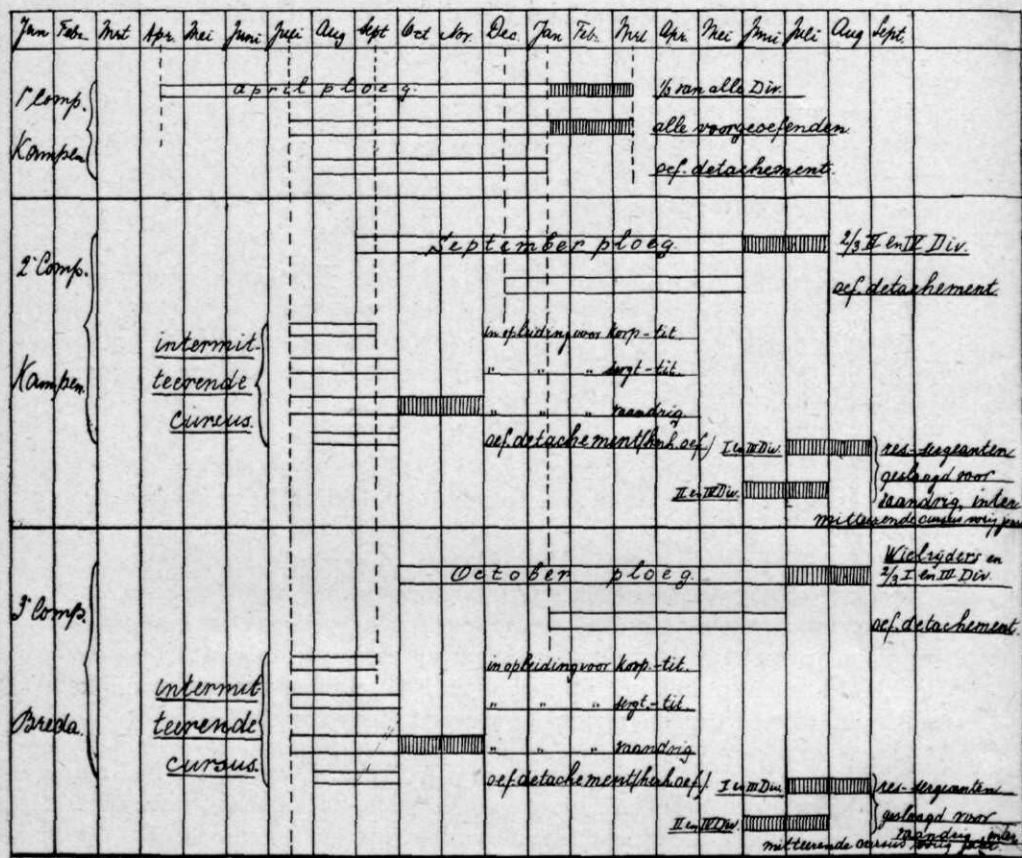 Jan Febr. Mrt Apr. Mei Juni Juli Aug Sept Oct Nov. Dec. Jan Feb. Mrt Apr. Mei Juni Juli Aug Sept.
1e Comp.
Kampen
april ploeg.
1/3 van alle Div.
alle voorgeoefenden
oef. detachement.
2e Comp.
Kampen
September ploeg.
2/3 II en IV Div.
oef. detachement
intermit-
teerende
cursus.
in opleiding voor korp-tit.
" " " sergt-tit.
" " " vaandrig
oef. detachement (herh. oef.) I en III Div.
II en IV Div.
res-sergeanten
geslaagd voor
vaandrig, inter
mitteerende cursus vorig jaar
3e Comp.
Breda.
October ploeg.
Wielrijders en
2/3 I en III Div.
oef. detachement.
intermit
teerende
cursus.
in opleiding voor korp.-tit.
" " " sergt.-tit.
" " " vaandrig
oef. detachement (herh. oef.) I en III Div.
II en IV Div.
res-sergeanten
geslaagd voor
vaandrig inter
mitteerende cursus vorig jaar.